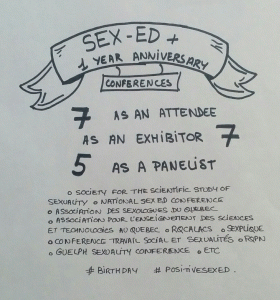 SEX-ED +
1 YEAR ANNIVERSARY
CONFERENCES
7 AS AN ATTENDEE
AS AN EXHIBITOR 7
5 AS A PANELIST
o SOCIETY FOR THE SCIENTIFIC STUDY OF
SEXUALITY o NATIONAL SEX ED CONFERENCE
o ASSOCIATION DES SEXOLOGUES DU QUEBEC
o ASSOCIATION POUR L'ENSEIGNEMENT DES SCIENCES
ET TECHNOLOGIES AU QUEBEC o RQCALACS o SEXPLIQUE
o CONFERENCE TRAVAIL SOCIAL ET SEXUALITÉS o RSPN
o GUELPH SEXUALITY CONFERENCE o ETC
# BIRTHDAY # POSITIVESEXED.